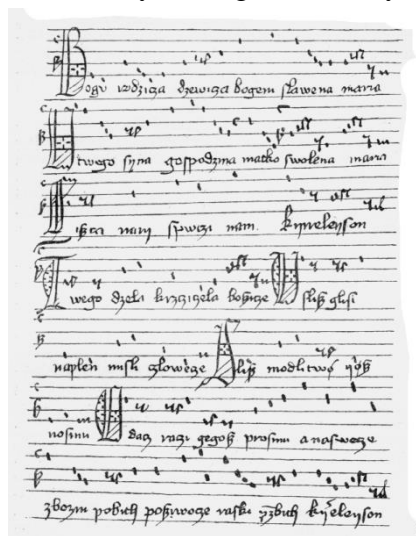 Bogu rodzicza dzewicza bogem slawena maria
U twego syna gospodzina matko swolena maria
nam spwczi nam. kyrieleyson
Twego dzela krzcziczela bozicze Uslisz glosi
naplen misli czlowecze Slisz modlitwo iosz
nosimi dacz raczi gegosz prosimi a naswecze
zbozni pobith kyrieleyson